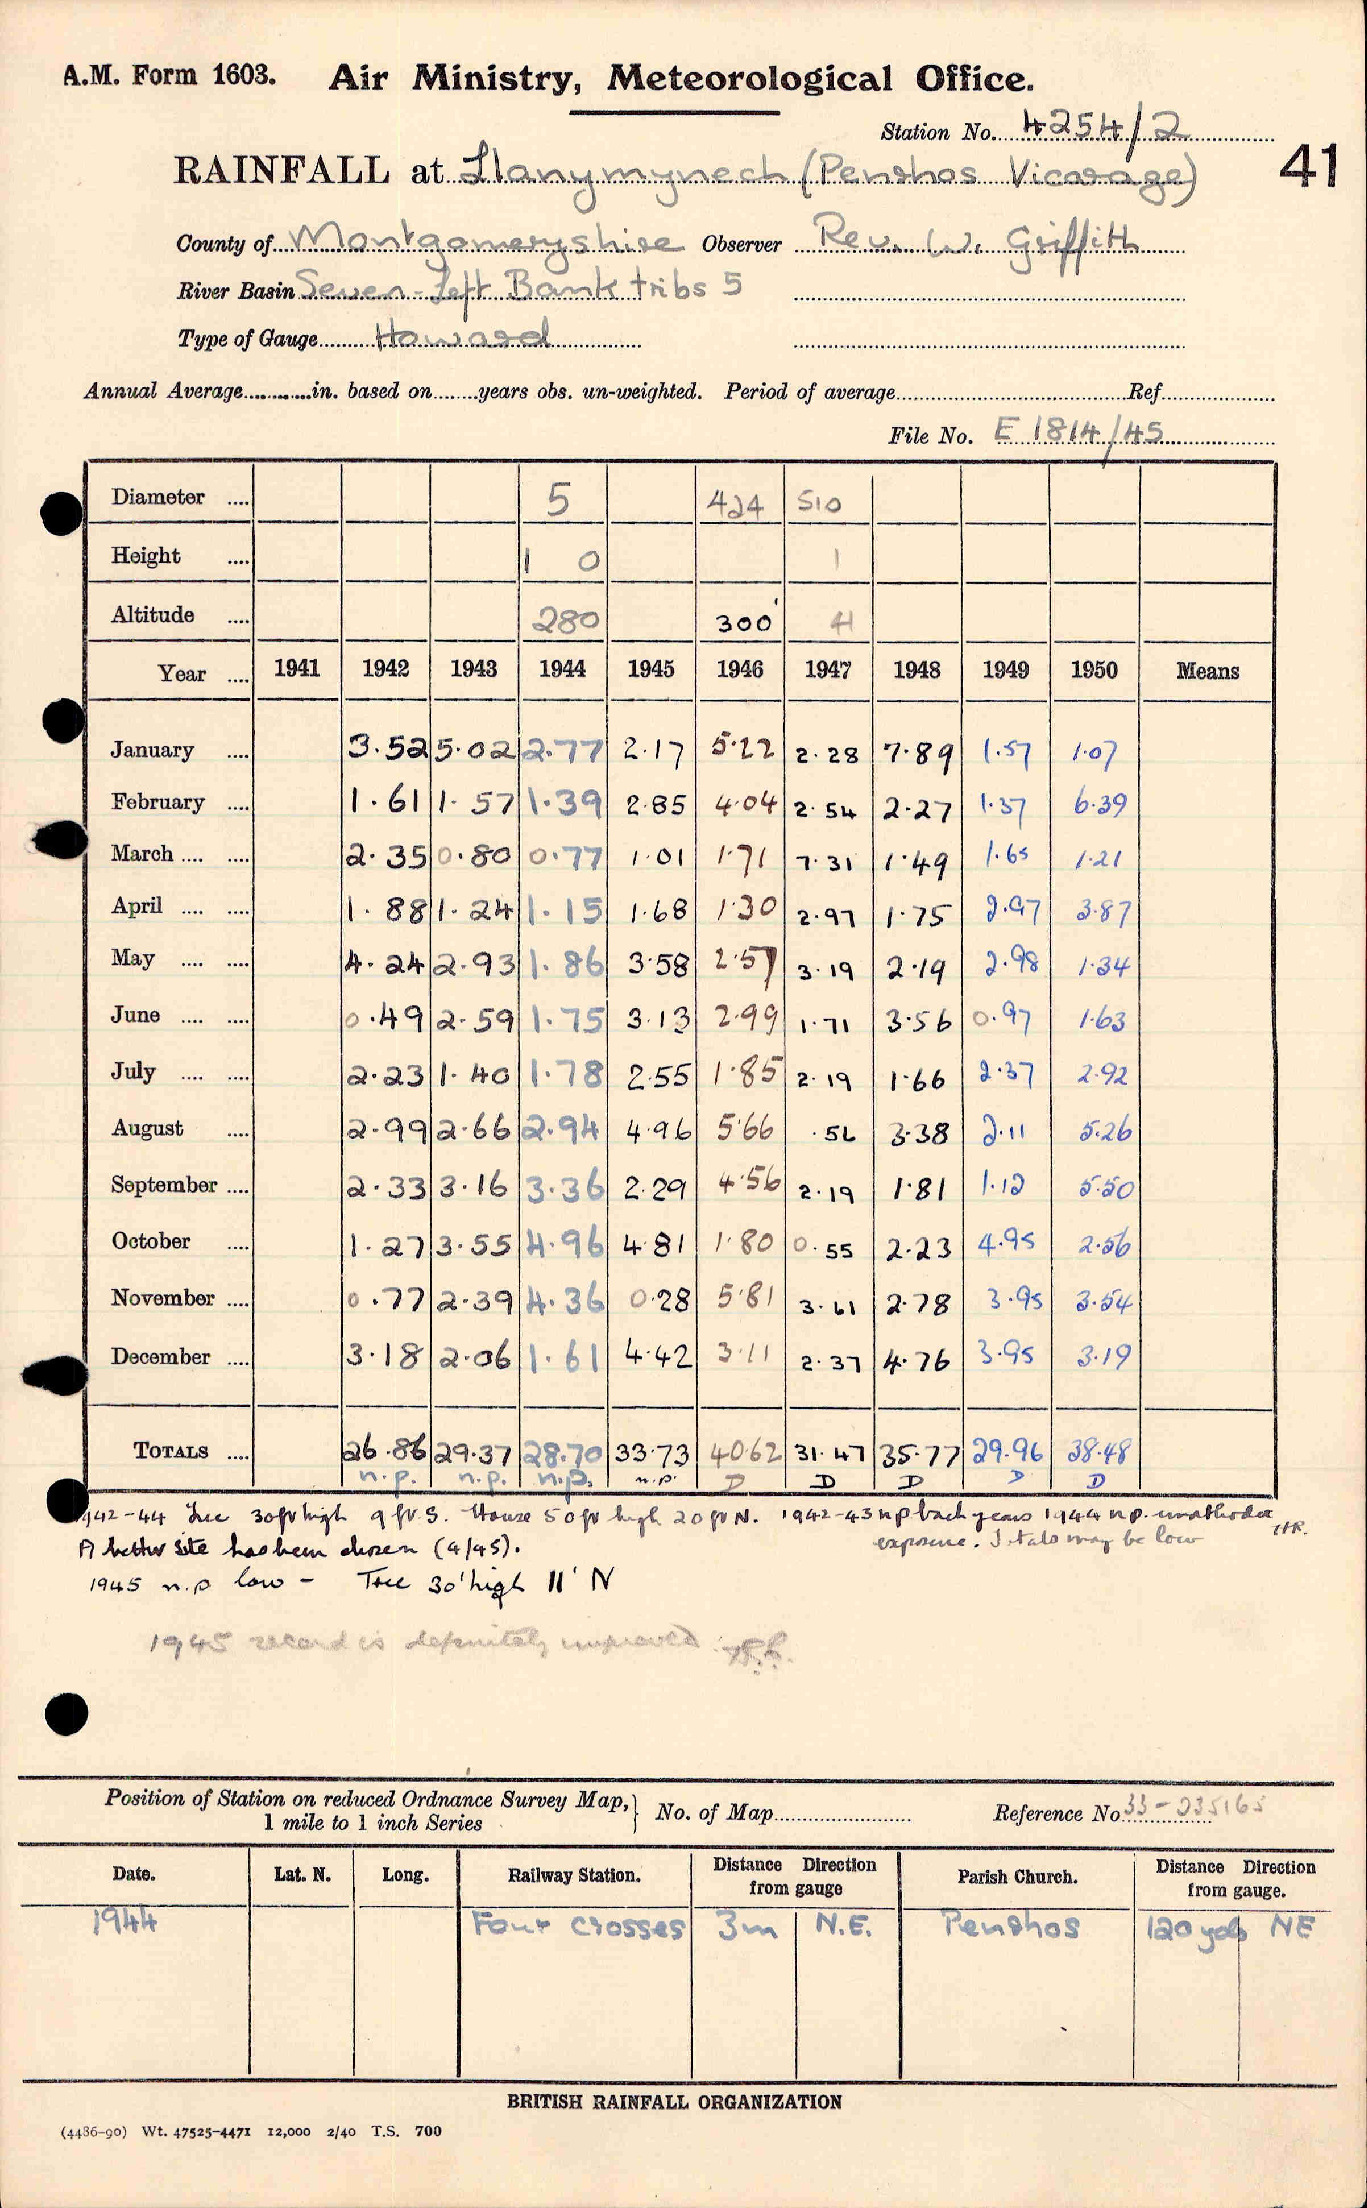 A.M. Form 1603. Air Ministry, Meteorological Office.
Station No. 4254/2
41
RAINFALL at Llanymynech (Penrhos Vicarage)
County of Montgomeryshire Observer Rev. W. Griffith
River Basin Seven-Left Bank tribs 5
Type of Gauge Howard
Annual Average............in. based on........years obs. un-weighted. Period of average........ Ref........
File No. E 1814/45
Diameter .... 5 424 510
Height .... 1 0 1
Altitude .... 280 300' 41
Year .... 1941 1942 1943 1944 1945 1946 1947 1948 1949 1950 Means
January .... 3.52 5.02 2.77 2.17 5.22 2.28 7.89 1.57 1.07
February .... 1.61 1.57 1.39 2.85 4.04 2.54 2.27 1.37 6.39
March .... .... 2.35 0.80 0.77 1.01 1.71 7.31 1.49 1.65 1.21
April .... .... 1.88 1.24 1.15 1.68 1.30 2.97 1.75 2.97 3.87
May .... .... 4.24 2.93 1.86 3.58 2.57 3.19 2.19 2.98 1.34
June .... .... 0.49 2.59 1.75 3.13 2.99 1.71 3.56 0.97 1.63
July .... .... 2.23 1.40 1.78 2.55 1.85 2.19 1.66 2.37 2.92
August .... 2.99 2.66 2.94 4.96 5.66 .56 3.38 2.11 5.26
September .... 2.33 3.16 3.36 2.29 4.56 2.19 1.81 1.12 5.50
October .... 1.27 3.55 4.96 4.81 1.80 0.55 2.23 4.95 2.56
November .... 0.77 2.39 4.36 0.28 5.81 3.61 2.78 3.95 3.54
December .... 3.18 2.06 1.61 4.42 3.11 2.37 4.76 3.95 3.19
TOTALS .... 26.86 29.37 28.70 33.73 40.62 31.47 35.77 29.96 38.48
n.p. n.p. n.p. n.p. D D D D D
1942-44 Tree 30ft high 9 ft S. House 50ft high 20ft N. 1942-43 n.p back years 1944 n.p. unorthodox
exposure. Totals may be low
A better site has been chosen (4/45).
1945 n.p low - Tree 30' high 11' N
1945 record is definitely improved
Position of Station on reduced Ordnance Survey Map,
1 mile to 1 inch Series
No. of Map........ Reference No 33-235165
Date. Lat. N. Long. Railway Station. Distance Direction from gauge Parish Church. Distance Direction from gauge.
1944 Four Crosses 3m N.E. Penrhos 120 yds NE
BRITISH RAINFALL ORGANIZATION
(4486-90) Wt. 47525-4471 12,000 2/40 T.S. 700